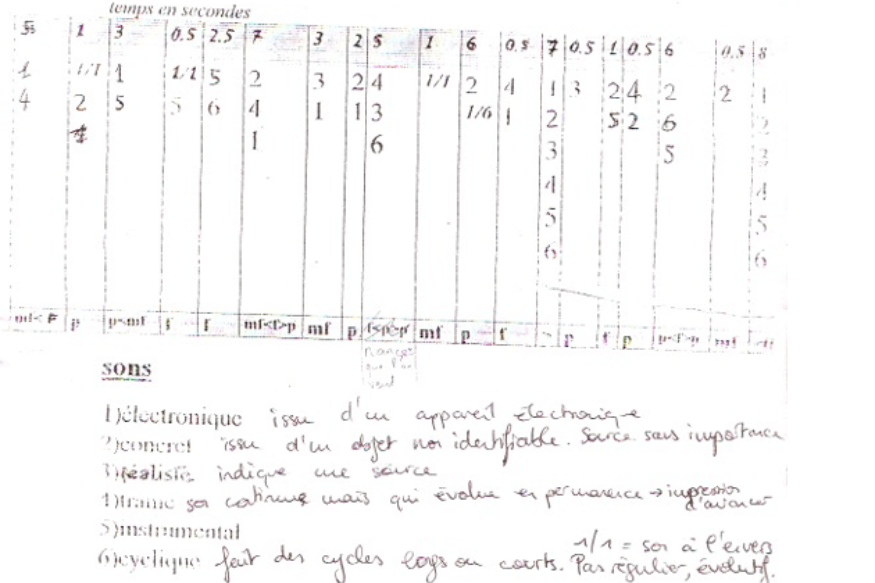 temps en secondes
1 3 0.5 2.5 7 3 2 5 1 6 0.5 7 0.5 1 0.5 6 0.5 8
1 1/1 1 1/1 5 2 3 2 4 1/1 2 4 1 3 2 4 2 2 1
4 2 5 5 6 4 1 1 3 1/6 1 2 5 2 6 2
1 6 3 5 3
4 4
5 5
6 6
mf<F p p<mf f f mf<f>p mf p mf p f p f p p<f>p mf
sons
1)électronique issu d'un appareil électronique
2)concret issu d'un objet non identifiable. Source sans importance
3)réaliste indique une source
4)trame son continue mais qui évolue en permanence → impression
d'avancer
5)instrumental
1/1 = son à l'envers
6)cyclique fait des cycles longs ou courts. Pas régulier, évolutif.